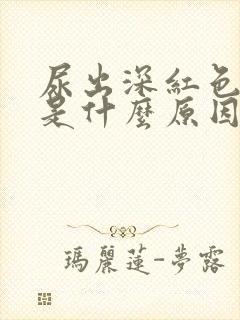 尿出深紅色
是什麼原因
瑪麗蓮-夢露